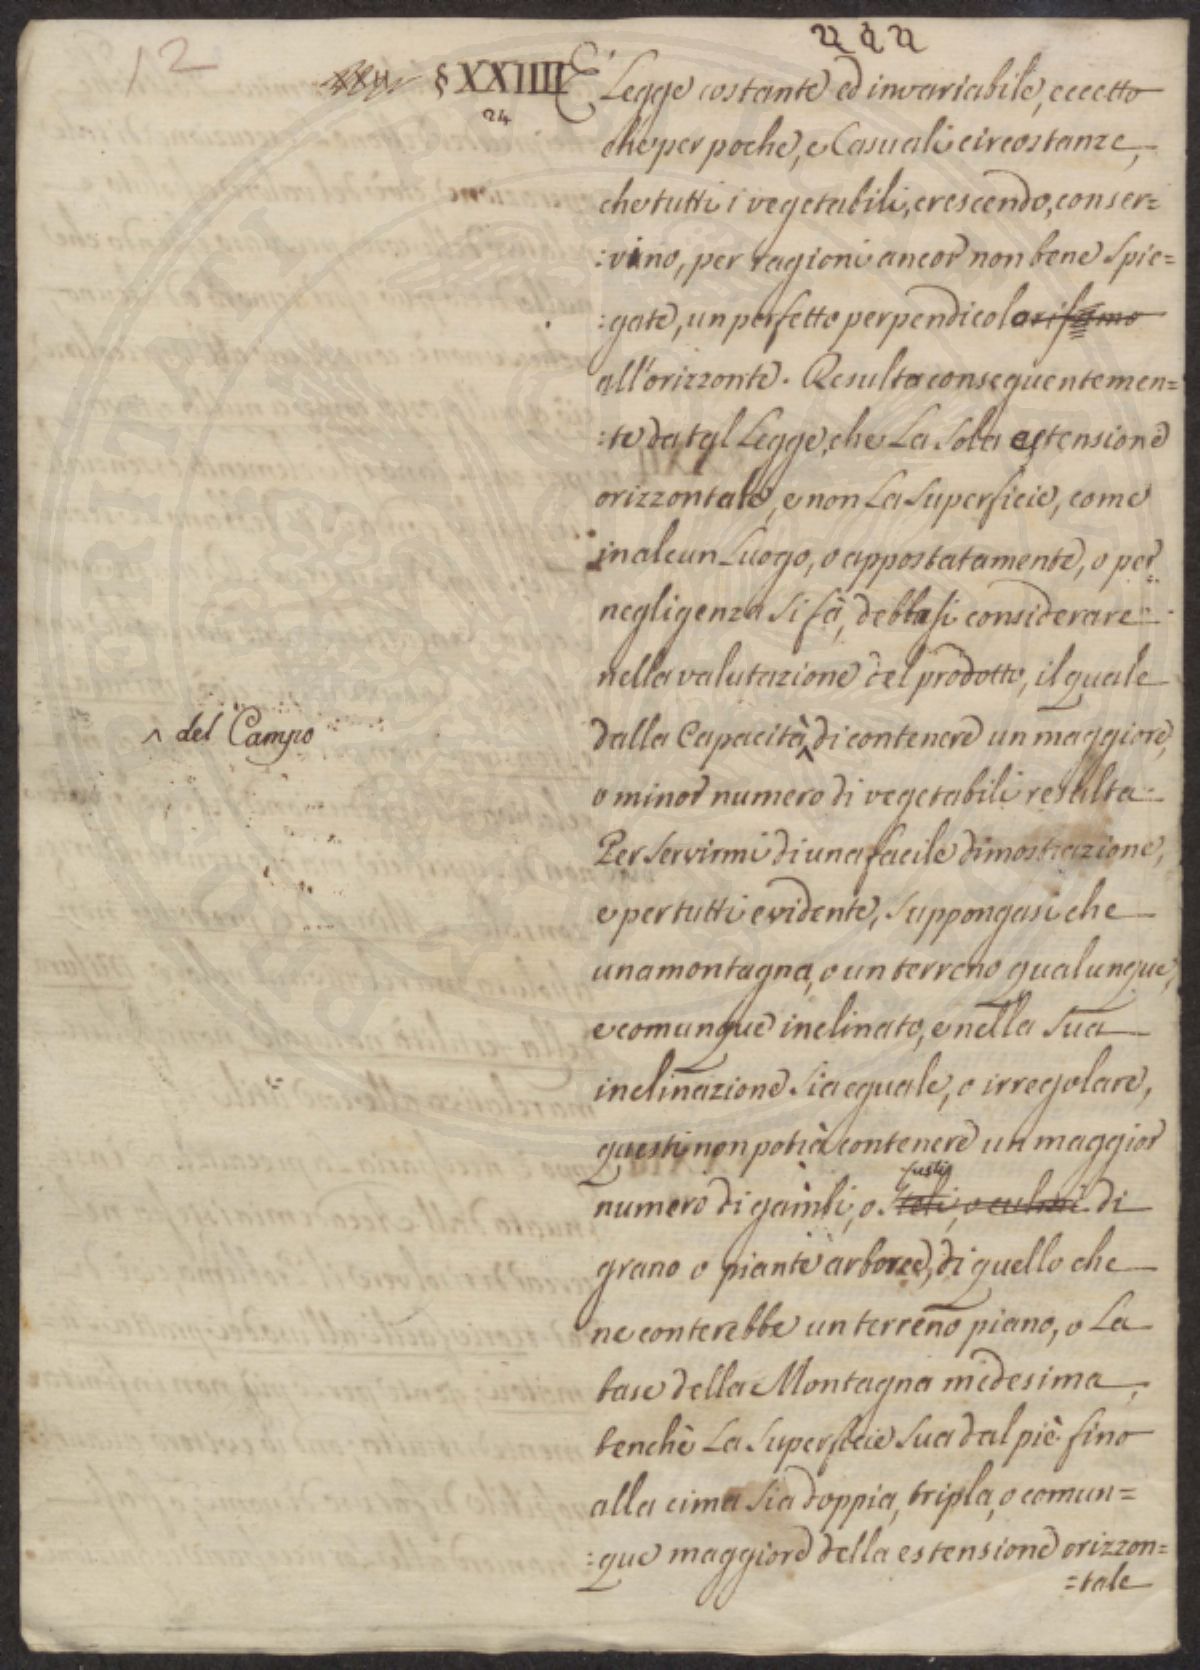 12
§ XXIIII
24
È Legge costante ed invariabile, eccetto
che per poche, e Casuali circostanze,
che tutti i vegetabili, crescendo, conser=
:vino, per ragioni ancor non bene spie=
:gate, un perfetto perpendicolarismo
all'orizzonte. Resulta conseguentemen=
:te da tal Legge, che La sola estensione
orizzontale, e non La superficie, come
in alcun Luogo, o appostatamente, o per
negligenza si fà, debbasi considerare
nella valutazione del prodotto, il quale
^ del Campo
dalla Capacità ^ di contenere un maggiore,
o minor numero di vegetabili resulta.
Per servirmi di una facile dimostrazione,
e per tutti evidente, suppongasi che
una montagna, o un terreno qualunque,
e comunque inclinato, e nella sua
inclinazione sia eguale, o irregolare,
questi non potrà contenere un maggior
fusti
numero di gambi, o steli, o culmi di
grano o piante arboree, di quello che
ne conterebbe un terreno piano, o La
base della Montagna medesima,
benchè La superficie sua dal piè fino
alla cima sia doppia, tripla, o comun=
:que maggiore della estensione orizzon=
=tale